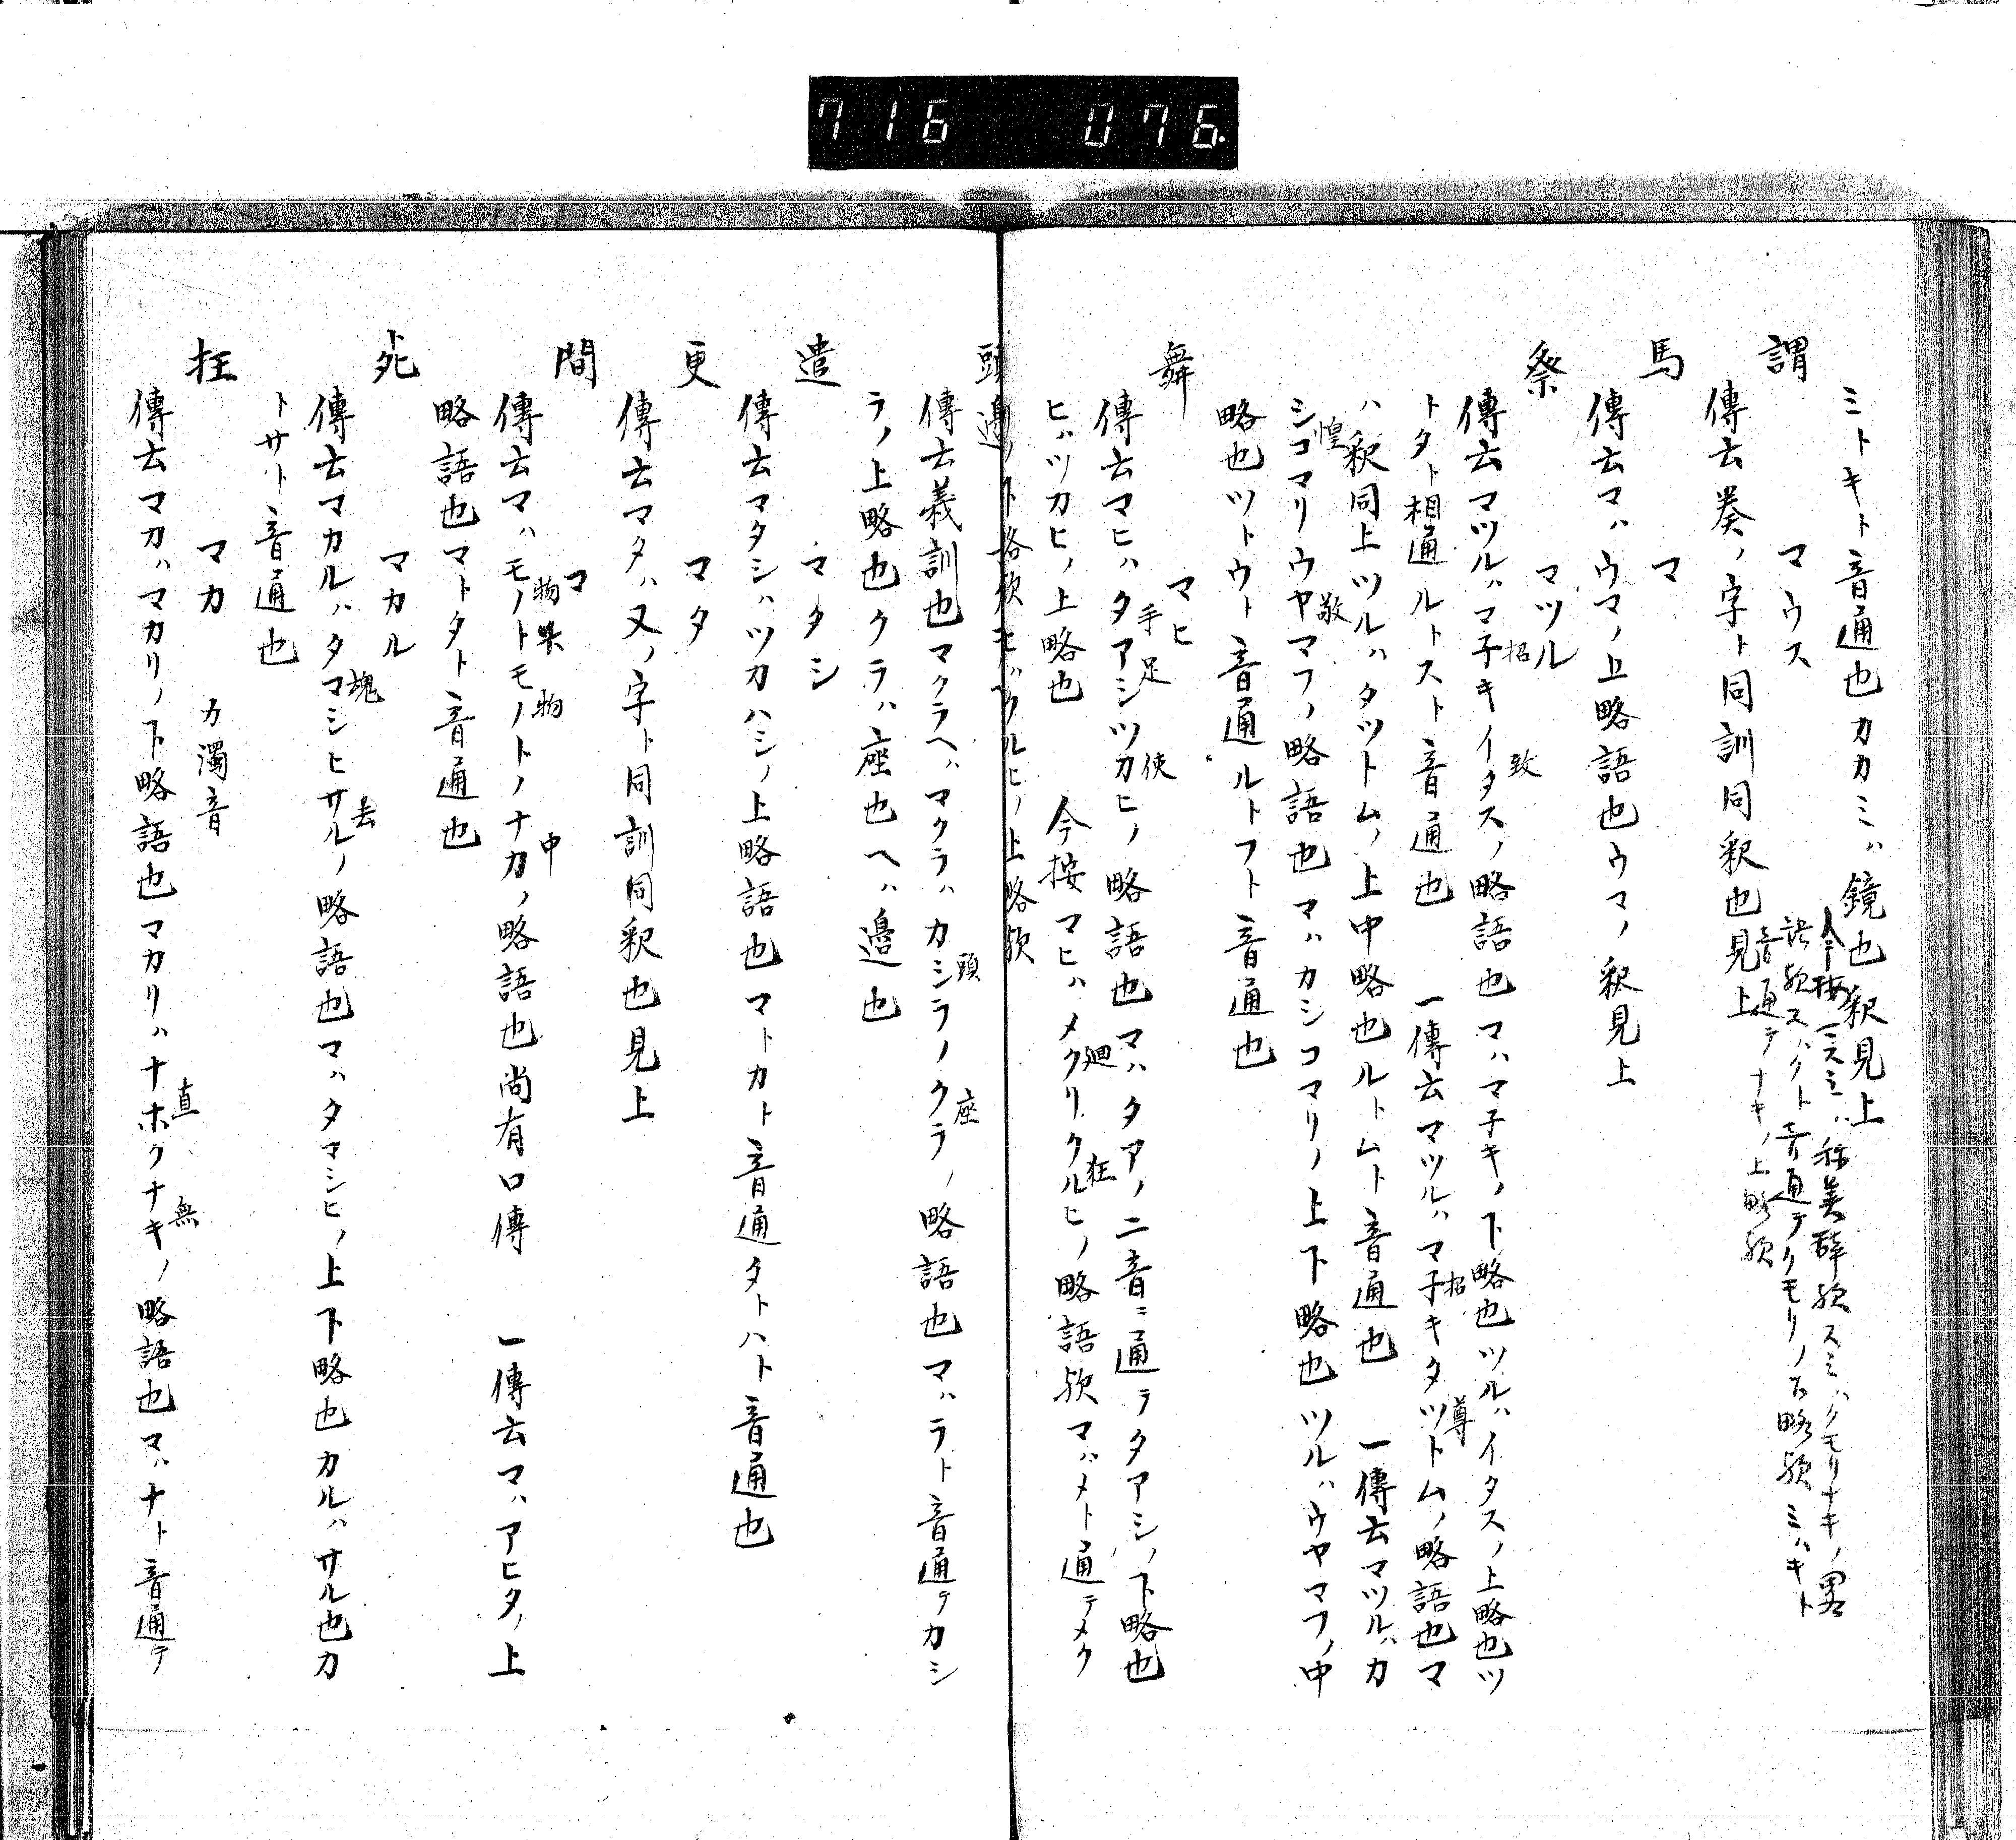 716 076
ミトキト音通也カカミハ鏡也釈見上
今按マスミハ称美辞歟スミハクモリナキノ畧
語歟スハクト音通テクモリノ下略歟ミハキト
音通テナキノ上略歟
謂 マウス
傳云奏ノ字ト同訓同釈也見上
馬 マ
傳云マハウマノ上略語也ウマノ釈見上
祭 マツル
傳云マツルハマ子キイタスノ略語也マハマ子キノ下略也ツルハイタスノ上略也ツ
招 致
トタト相通ルトスト音通也 一傳云マツルハマ子キタツトムノ略語也マ
招 尊
ハ釈同上ツルハタツトムノ上中略也ルトムト音通也 一傳云マツルハカ
シコマリウヤマフノ略語也マハカシコマリノ上下略也ツルハウヤマフノ中
惶 敬
略也ツトウト音通ルトフト音通也
舞 マヒ
傳云マヒハタアシツカヒノ略語也マハタアノ二音ニ通テタアシノ下略也
手足 使
ヒハツカヒノ上略也 今按マヒハメクリクルヒノ略語歟マハメト通テメク
廻 狂
リノ下略歟ヒハクルヒノ上略歟
頭邊
傳云義訓也マクラヘハマクラハカシラノクラノ略語也マハラト音通テカシ
頭 座
ラノ上略也クラハ座也ヘハ邊也
遣 マタシ
傳云マタシハツカハシノ上略語也マトカト音通タトハト音通也
更 マタ
傳云マタハ又ノ字ト同訓同釈也見上
間 マ
傳云マハモノトモノトノナカノ略語也尚有口傳 一傳云マハアヒタノ上
物 物 中
略語也マトタト音通也
死 マカル
傳云マカルハタマシヒサルノ略語也マハタマシヒノ上下略也カルハサル也カ
魂 去
トサト音通也
枉 マカ カ濁音
傳云マカハマカリノ下略語也マカリハナホクナキノ略語也マハナト音通テ
直 無